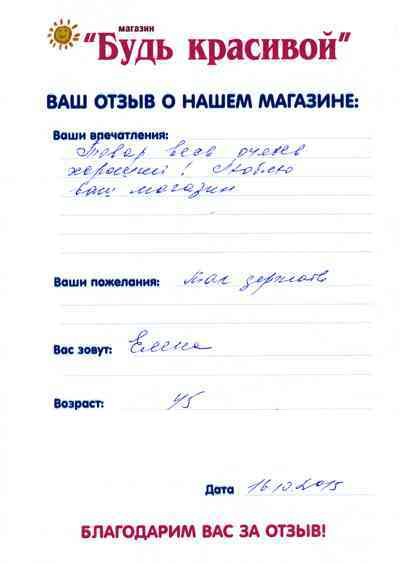 магазин
"Будь красивой"
ВАШ ОТЗЫВ О НАШЕМ МАГАЗИНЕ:
Ваши впечатления:
Товар весь очень
хороший! Люблю
ваш магазин
Ваши пожелания: Так держать
Вас зовут: Елена
Возраст: 45
Дата 16.10.2015
БЛАГОДАРИМ ВАС ЗА ОТЗЫВ!